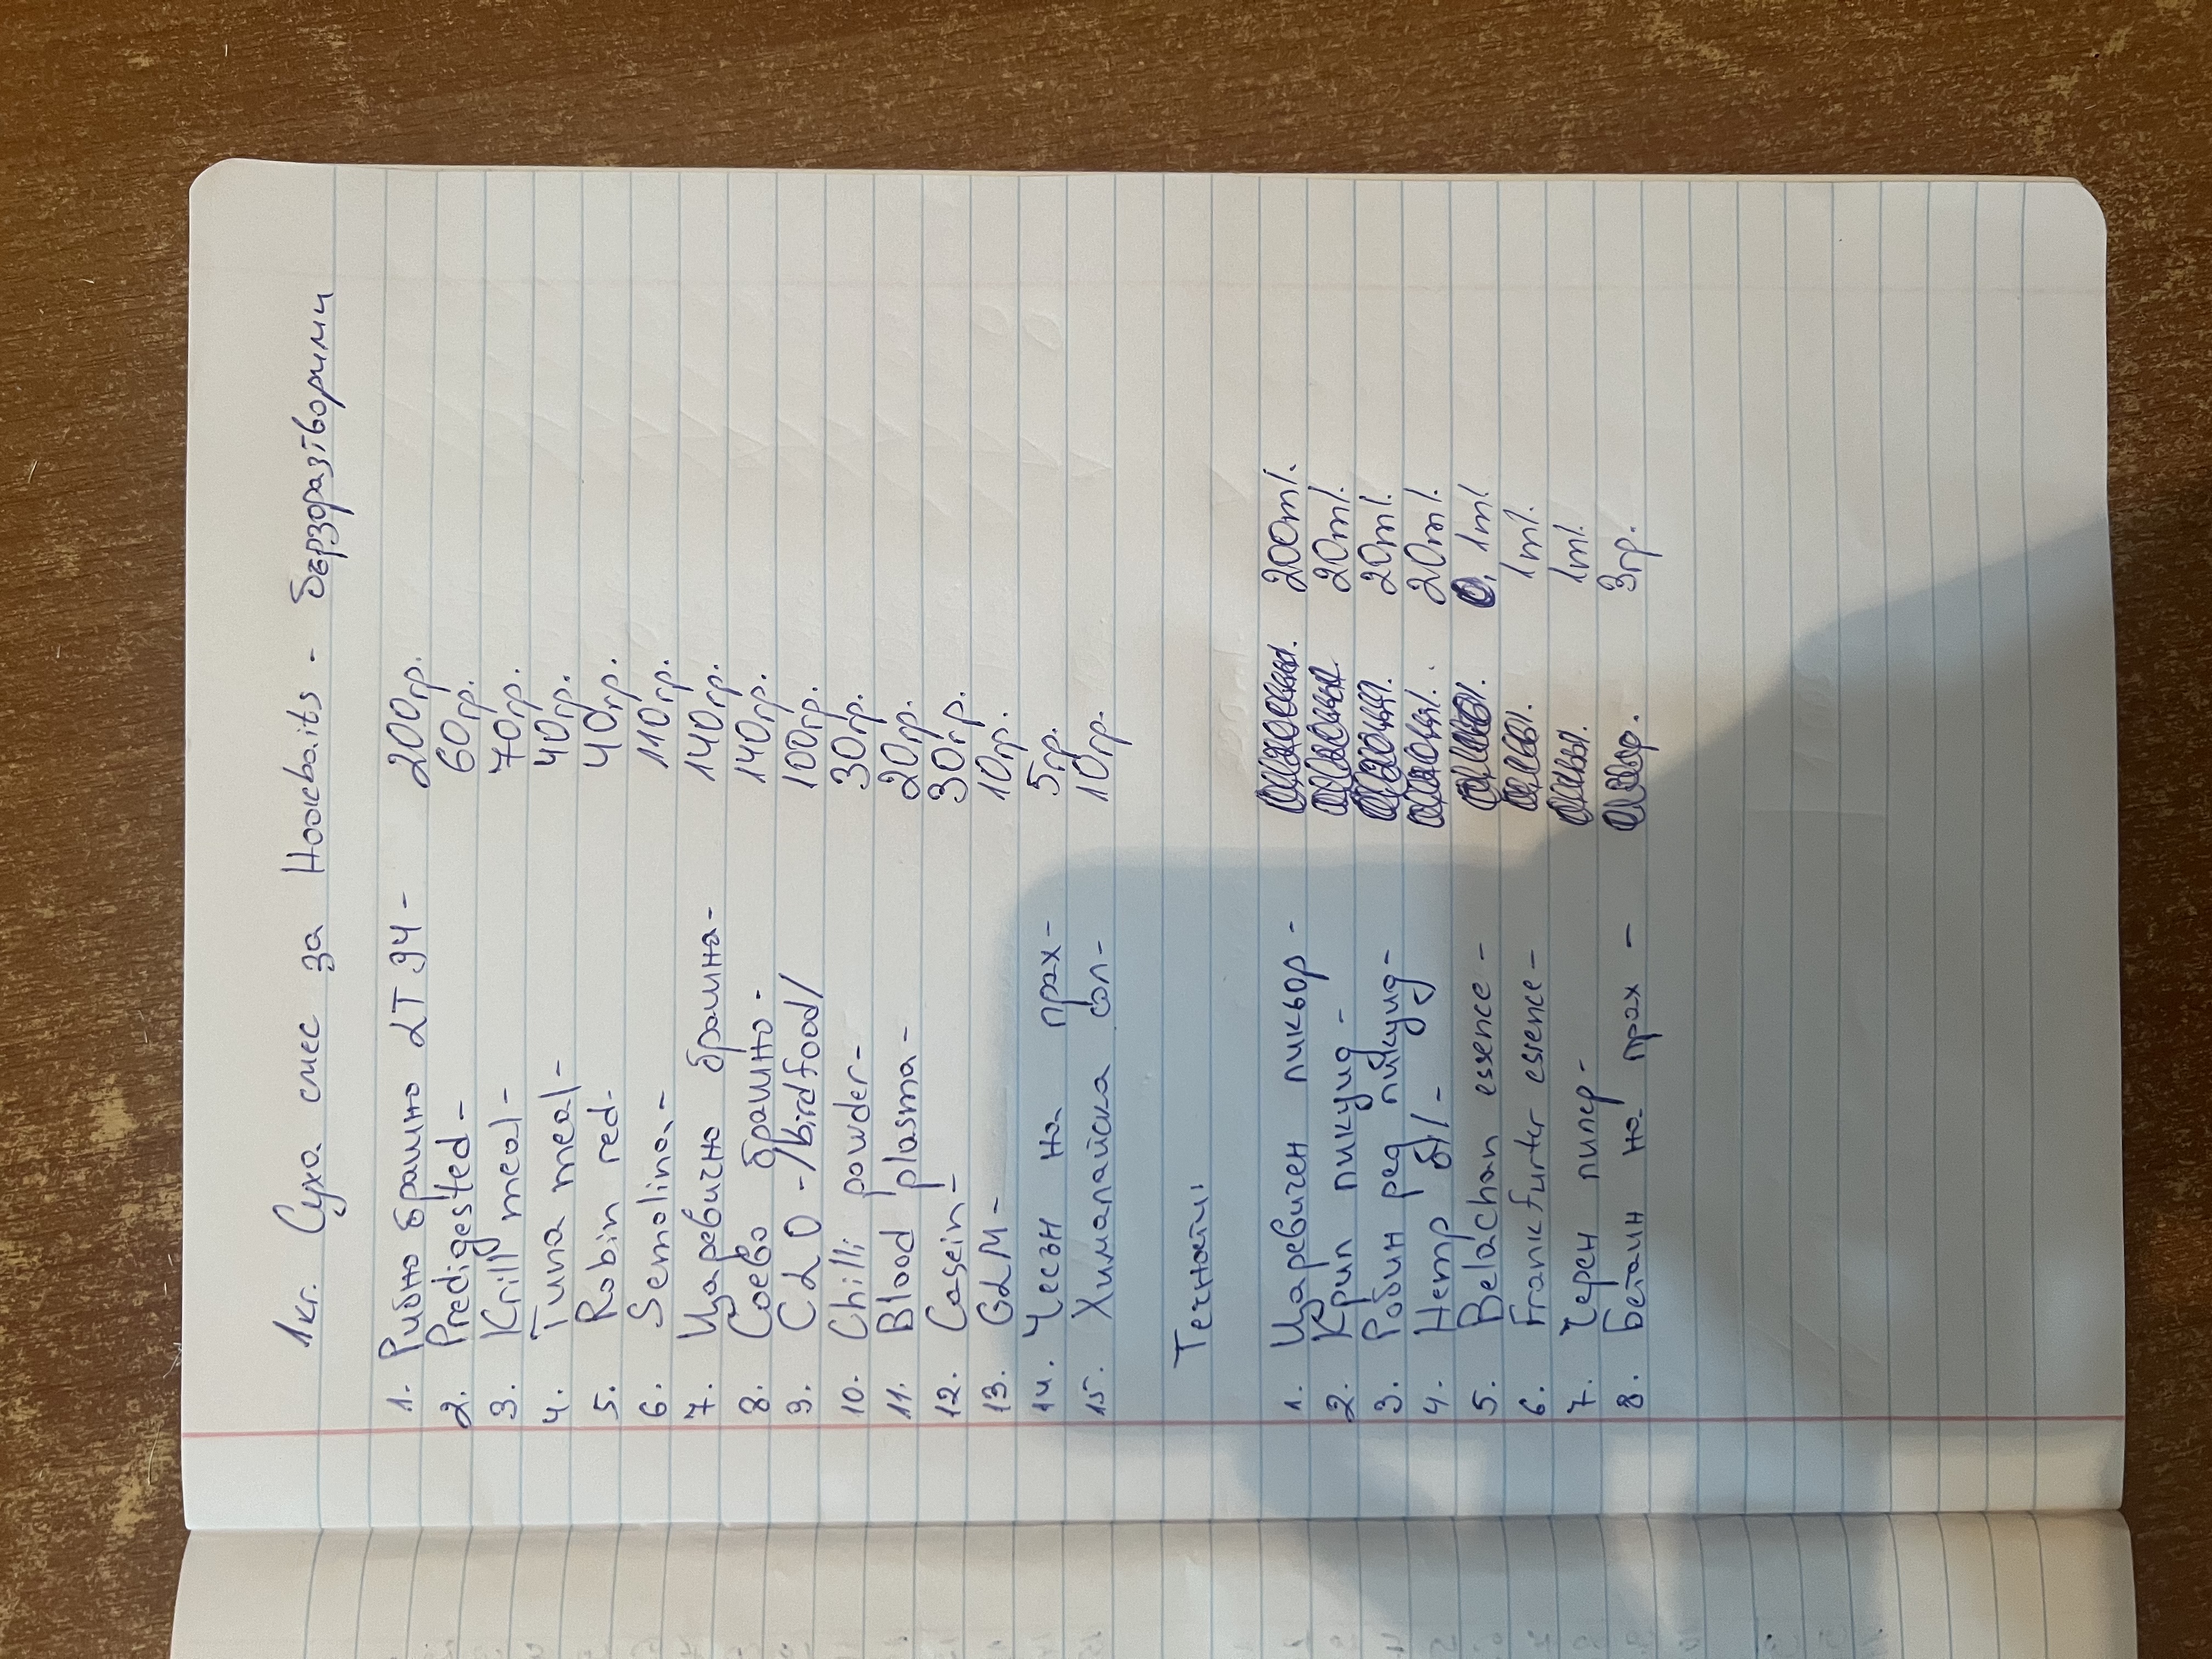 1кг. Суха смес за Hookbaits - бързоразтворими
1. Рибно брашно LT 94 - 200гр.
2. Predigested - 60гр.
3. Krill meal - 70гр.
4. Tuna meal - 40гр.
5. Robin red - 40гр.
6. Semolina - 110гр.
7. Царевично брашна - 140гр.
8. Соево брашно - 140гр.
9. CLO - /birdfood/ 100гр.
10. Chilli powder - 30гр.
11. Blood plasma - 20гр.
12. Casein - 30гр.
13. GLM - 10гр.
14. Чесън на прах - 5гр.
15. Хималайска сол - 10гр.
Течности:
1. Царевичен ликьор - 200ml.
2. Крил ликуид - 20ml.
3. Робин ред ликуид - 20ml.
4. Hemp - 20ml.
5. Belachan essence - 1ml
6. Frankfurter essence - 1ml.
7. Черен пипер - 1ml.
8. Бетаин на прах - 3гр.